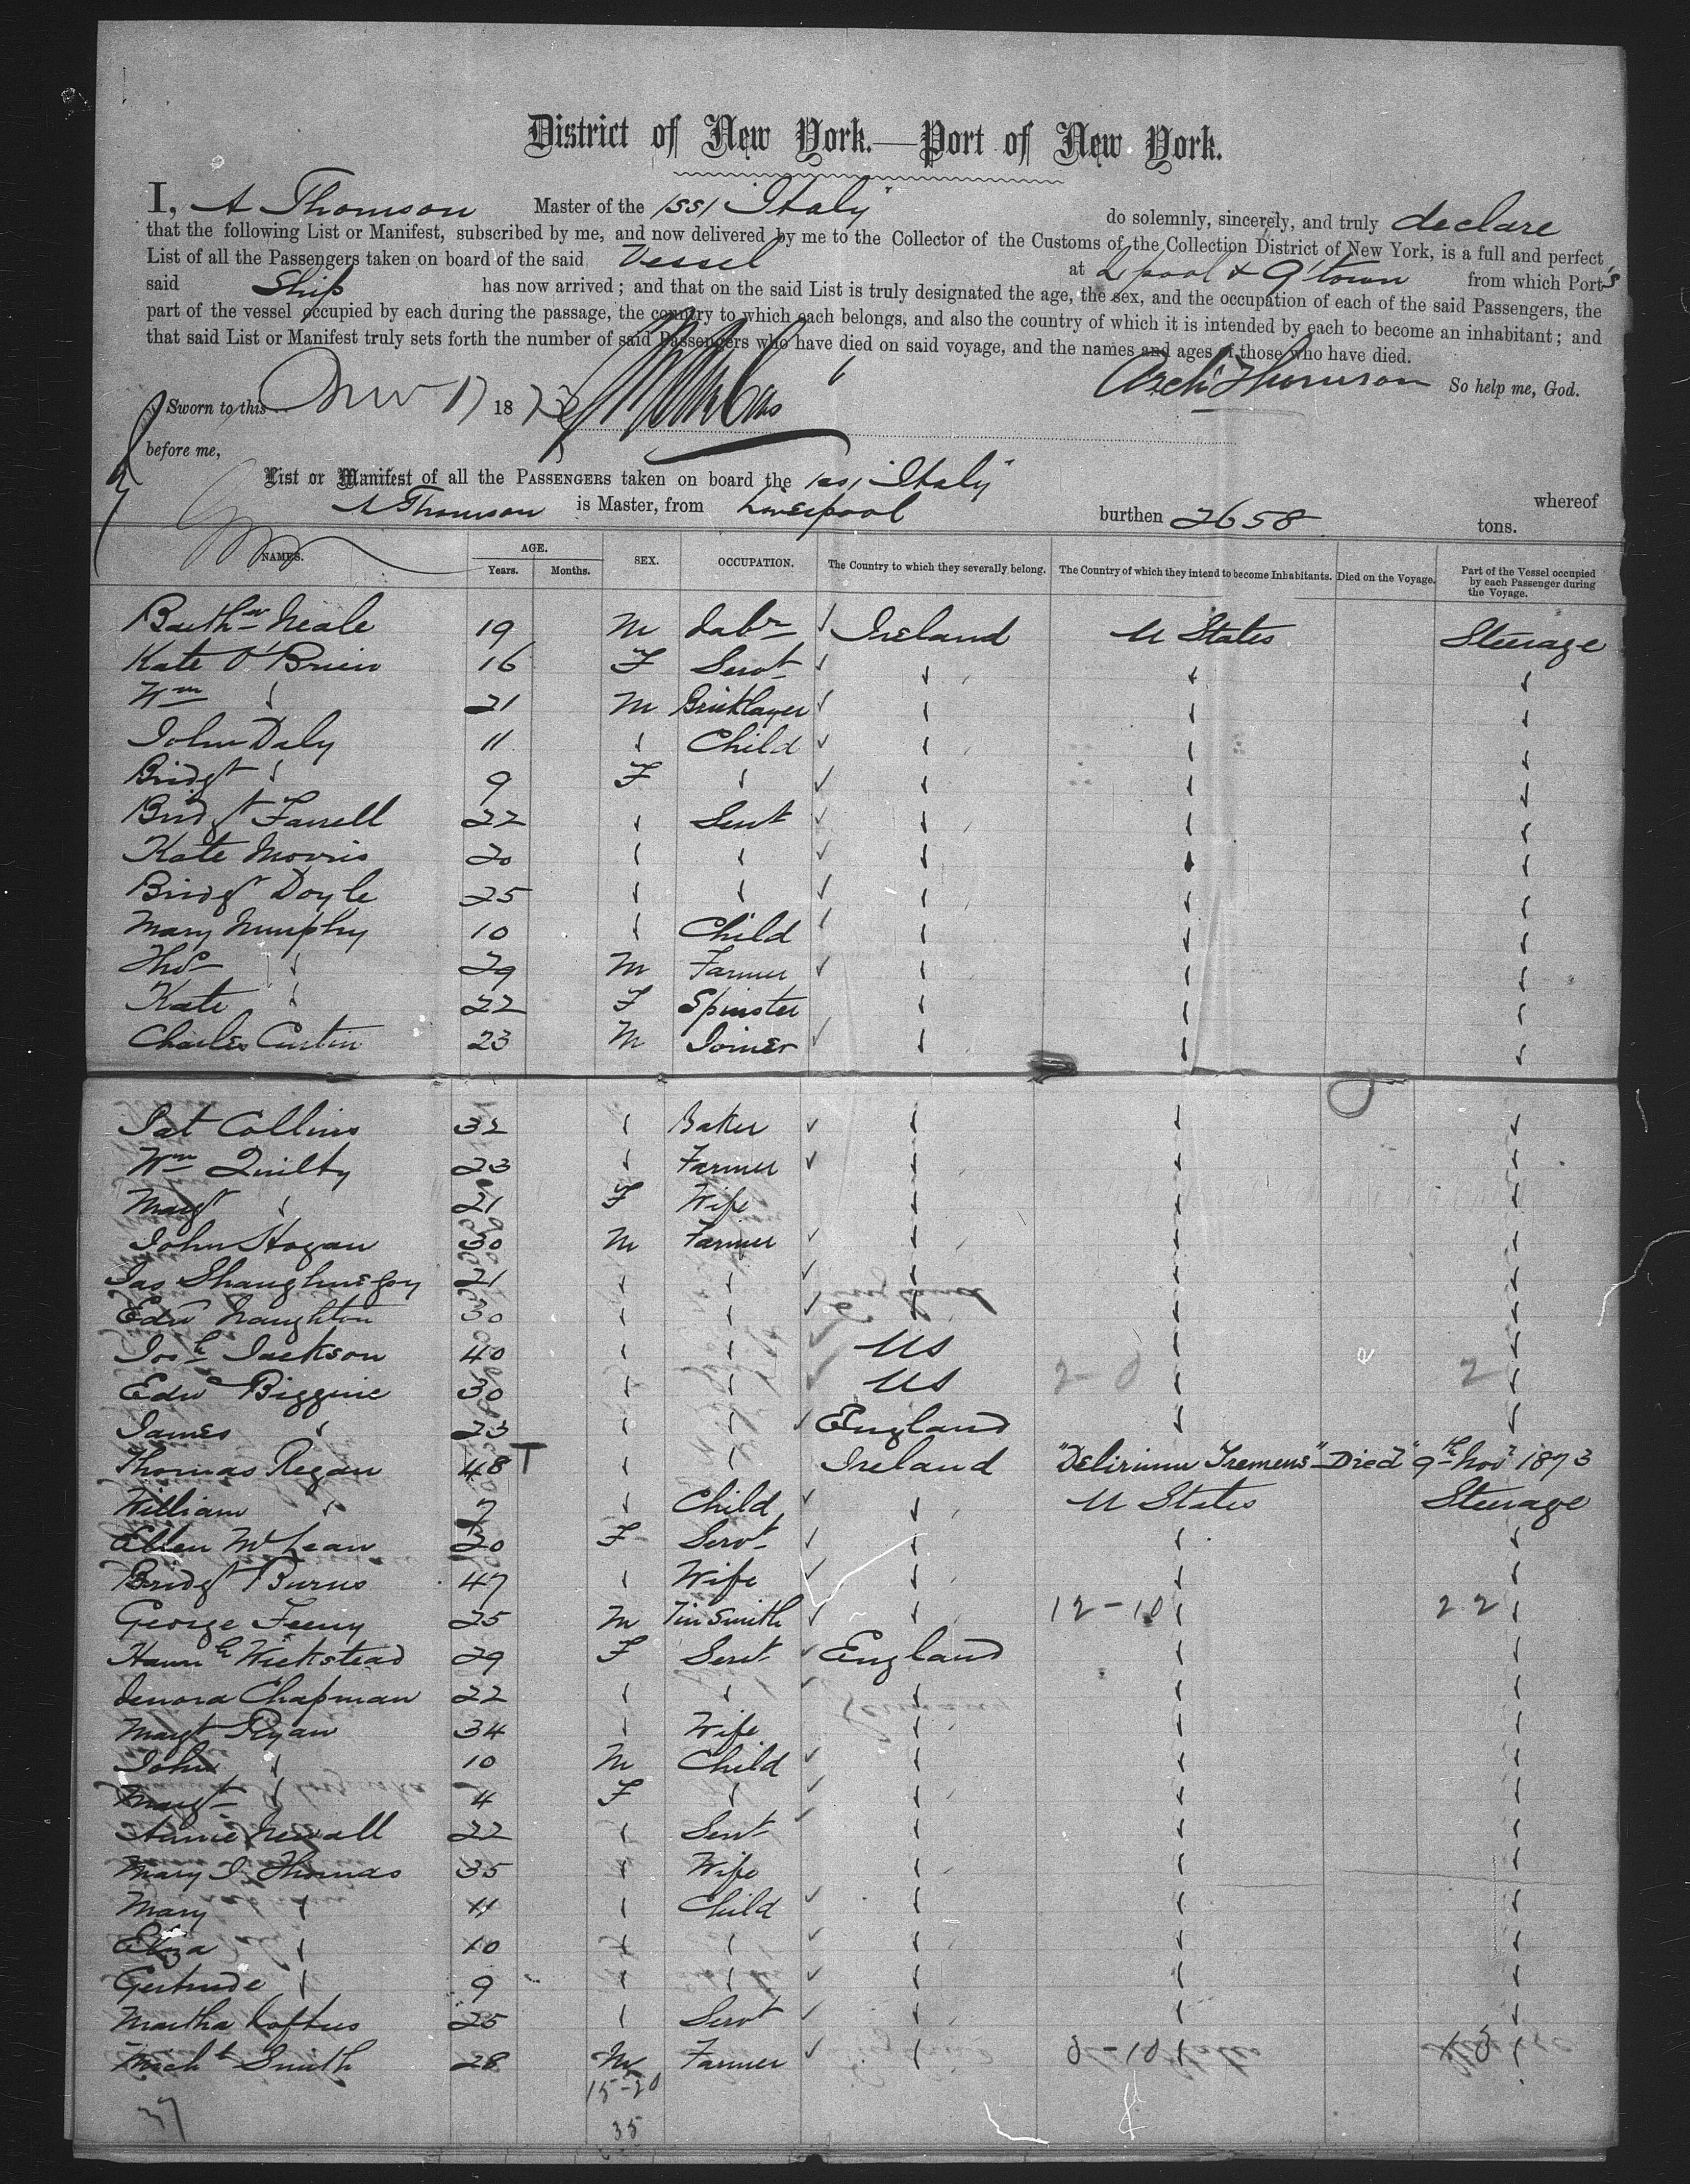 District of New York.—Port of New York.
I, A Thomson Master of the "Italy" do solemnly, sincerely, and truly declare
that the following List or Manifest, subscribed by me, and now delivered by me to the Collector of the Customs of the Collection District of New York, is a full and perfect
List of all the Passengers taken on board of the said Vessel at L'pool & Q'town from which Port's
said Ship has now arrived; and that on the said List is truly designated the age, the sex, and the occupation of each of the said Passengers, the
part of the vessel occupied by each during the passage, the country to which each belongs, and also the country of which it is intended by each to become an inhabitant; and
that said List or Manifest truly sets forth the number of said Passengers who have died on said voyage, and the names and ages of those who have died.
Sworn to this Nov 17 1873 Arch Thomson So help me, God.
before me,
List or Manifest of all the PASSENGERS taken on board the "Italy" whereof
A Thomson is Master, from Liverpool burthen 2658 tons.
NAMES. AGE. Years. Months. SEX. OCCUPATION. The Country to which they severally belong. The Country of which they intend to become Inhabitants. Died on the Voyage. Part of the Vessel occupied by each Passenger during the Voyage.
Barthw Neale 19 M Labr Ireland U States Steerage
Kate O'Brien 16 F Servt
Wm 21 M Bricklayer
John Daly 11 Child
Bridgt 9 F
Bridgt Farrell 22 Servt
Kate Morris 20
Bridgt Doyle 25
Mary Murphy 10 Child
Thos 29 M Farmer
Kate 22 F Spinster
Charles Curtin 23 M Joiner
Pat Collins 32 Baker
Wm Quilty 23 Farmer
Margt 21 F Wife
John Hogan 30 M Farmer
Jas Shaughnessy 21
Edwd Naughton 30
Josh Jackson 40 US
Edwd Biggnie 30 US 2-0 2
James 23 England
Thomas Regan 48 T Ireland "Delirium Tremens" Died 9th Nov 1873
William 7 Child U States Steerage
Ellen McLean 20 F Servt
Bridgt Burns 47 Wife
George Feeny 25 M Tinsmith 12-10 22
Hannh Wickstead 29 F Servt England
Lenora Chapman 22
Margt Ryan 34 Wife
John 10 M Child
Margt 4 F
Annie Newall 22 Servt
Mary J. Thomas 35 Wife
Mary 11 Child
Eliza 10
Gertrude 9
Martha Loftus 25 Servt
Michl Smith 28 M Farmer
15-20
37 35